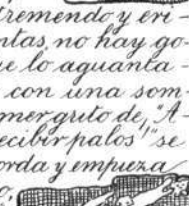 Tremendo y eri-
ntas, no hay go-
ue lo aguanta -
con una som-
mer grito de, "A-
ecibir palos" "se
orda y empieza
o,